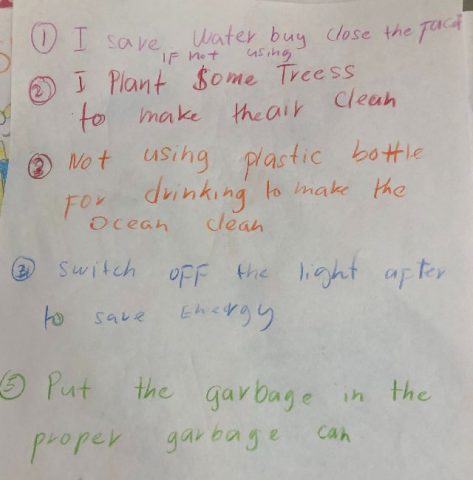 ① I save water buy close the Facat
IF not using
② I Plant Some Treess
to make the air clean
③ Not using plastic bottle
For drinking to make the
Ocean clean
④ switch OFF the light after
to save Energy
⑤ Put the garbage in the
proper garbage can